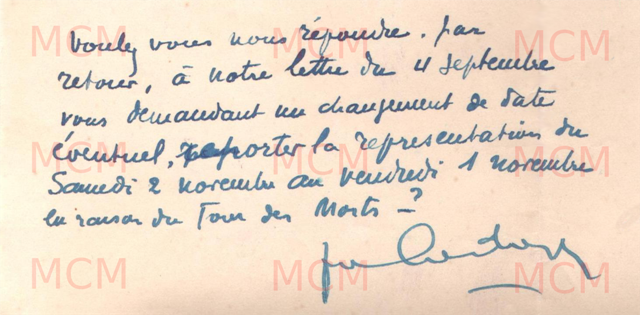 Voulez vous nous répondre. par
retour, à notre lettre du 4 septembre
vous demandant un changement de date
éventuel, reporter la représentation du
Samedi 2 novembre au vendredi 1 novembre
en raison du Jour des Morts - ?
MCM MCM MCM
MCM MCM MCM
MCM MCM MCM